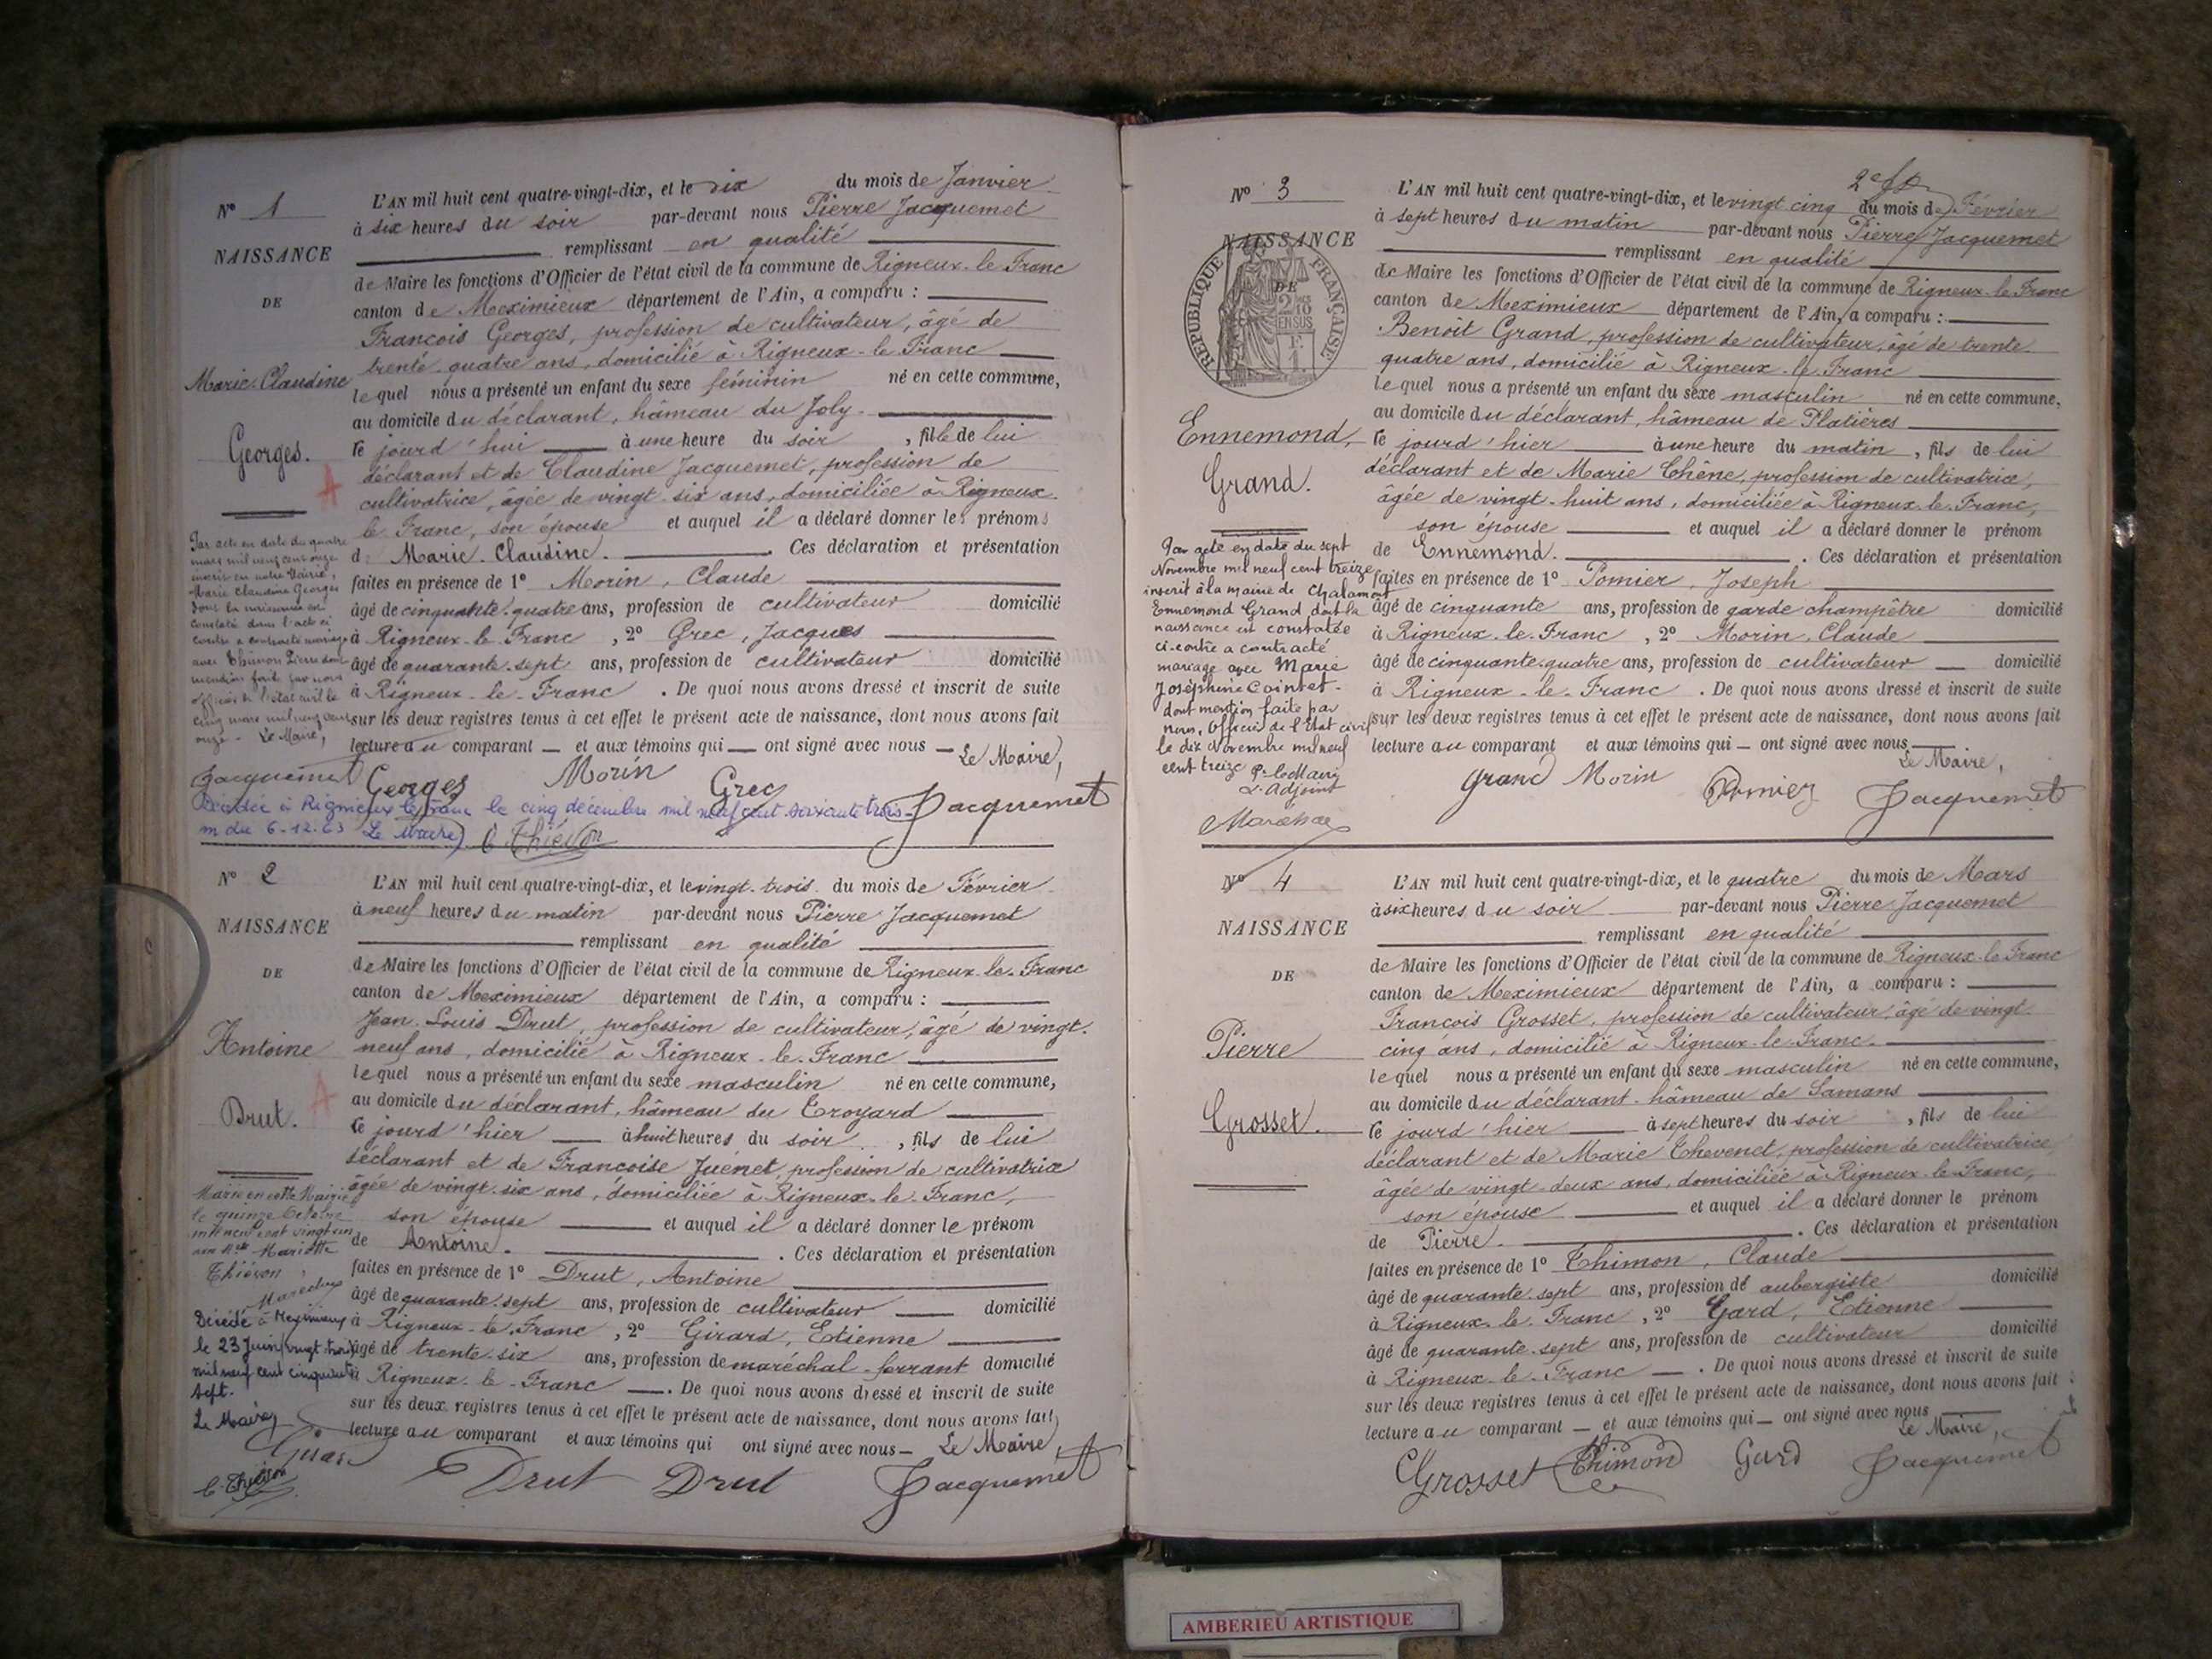 Nº 1
NAISSANCE
DE
Marie Claudine
Georges.
A
L'AN mil huit cent quatre-vingt-dix, et le dix du mois de Janvier
à six heures du soir par-devant nous Pierre Jacquemet
remplissant en qualité
de Maire les fonctions d'Officier de l'état civil de la commune de Rigneux-le-Franc
canton de Meximieux département de l'Ain, a comparu :
François Georges, profession de cultivateur, âgé de
trente quatre ans, domicilié à Rigneux-le-Franc
lequel nous a présenté un enfant du sexe féminin né en cette commune,
au domicile du déclarant, hâmeau du Joly.
ce jourd'hui à une heure du soir, fille de lui
déclarant et de Claudine Jacquemet, profession de
cultivatrice, âgée de vingt-six ans, domiciliée à Rigneux-
le Franc, son épouse et auquel il a déclaré donner les prénoms
de Marie-Claudine. Ces déclaration et présentation
faites en présence de 1º Morin, Claude
âgé de cinquante-quatre ans, profession de cultivateur domicilié
à Rigneux-le-Franc, 2º Grec, Jacques
âgé de quarante-sept ans, profession de cultivateur domicilié
à Rigneux-le-Franc. De quoi nous avons dressé et inscrit de suite
sur les deux registres tenus à cet effet le présent acte de naissance, dont nous avons fait
lecture au comparant et aux témoins qui ont signé avec nous Le Maire,
Par acte en date du quatre
mars mil neuf cent onze
inscrit en notre Mairie,
Marie Claudine Georges
dont la naissance est
constatée dans l'acte ci
contre a contracté mariage
avec Thimon Pierre dont
mention faite par nous
officier de l'état civil le
cinq mars mil neuf cent
onze - Le Maire,
Jacquemet Georges Morin Grec Jacquemet
Décédée à Rignieux le Franc le cinq décembre mil neuf cent soixante trois-
m du 6-12-63 Le Maire C Thiévon
Nº 2
NAISSANCE
DE
Antoine
Drut.
A
L'AN mil huit cent quatre-vingt-dix, et le vingt-trois du mois de Février
à neuf heures du matin par-devant nous Pierre Jacquemet
remplissant en qualité
de Maire les fonctions d'Officier de l'état civil de la commune de Rigneux-le-Franc
canton de Meximieux département de l'Ain, a comparu :
Jean-Louis Drut, profession de cultivateur, âgé de vingt-
neuf ans, domicilié à Rigneux-le-Franc
lequel nous a présenté un enfant du sexe masculin né en cette commune,
au domicile du déclarant, hâmeau du Troyard
ce jourd'hier à huit heures du soir, fils de lui
déclarant et de Françoise Juénet, profession de cultivatrice
âgée de vingt-six ans, domiciliée à Rigneux-le-Franc,
son épouse et auquel il a déclaré donner le prénom
de Antoine. Ces déclaration et présentation
faites en présence de 1º Drut, Antoine
âgé de quarante-sept ans, profession de cultivateur domicilié
à Rigneux-le-Franc, 2º Girard, Etienne
âgé de trente-six ans, profession de maréchal-ferrant domicilié
à Rigneux-le-Franc. De quoi nous avons dressé et inscrit de suite
sur les deux registres tenus à cet effet le présent acte de naissance, dont nous avons fait
lecture au comparant et aux témoins qui ont signé avec nous Le Maire,
Marié en cette Mairie
le quinze Octobre
mil neuf cent vingt
avec Mariette
Thiévon
Décédé à Meximieux
le 23 Juin (vingt-trois)
mil neuf cent cinquante
sept.
Le Maire
C. Thiévon
Drut Drut Jacquemet
Nº 3
NAISSANCE
DE
REPUBLIQUE FRANÇAISE
EN SUS
Ennemond,
Grand.
L'AN mil huit cent quatre-vingt-dix, et le vingt cinq du mois de Février
à sept heures du matin par-devant nous Pierre Jacquemet
remplissant en qualité
de Maire les fonctions d'Officier de l'état civil de la commune de Rigneux-le-Franc
canton de Meximieux département de l'Ain, a comparu :
Benoit Grand, profession de cultivateur, âgé de trente-
quatre ans, domicilié à Rigneux-le-Franc
lequel nous a présenté un enfant du sexe masculin né en cette commune,
au domicile du déclarant, hâmeau de Platières
ce jourd'hier à une heure du matin, fils de lui
déclarant et de Marie Chêne, profession de cultivatrice,
âgée de vingt-huit ans, domiciliée à Rigneux-le-Franc,
son épouse et auquel il a déclaré donner le prénom
de Ennemond. Ces déclaration et présentation
faites en présence de 1º Pomier, Joseph
âgé de cinquante ans, profession de garde champêtre domicilié
à Rigneux-le-Franc, 2º Morin, Claude
âgé de cinquante-quatre ans, profession de cultivateur domicilié
à Rigneux-le-Franc. De quoi nous avons dressé et inscrit de suite
sur les deux registres tenus à cet effet le présent acte de naissance, dont nous avons fait
lecture au comparant et aux témoins qui ont signé avec nous
Le Maire,
Par acte en date du sept
Novembre mil neuf cent treize
inscrit à la mairie de Chalamont
Ennemond Grand dont la
naissance est constatée
ci-contre a contracté
mariage avec Marie
Joséphine Cointet-
dont mention faite par
nous, Officier de l'Etat civil
le dix Novembre mil neuf
cent treize P. le Maire
L'Adjoint
Grand Morin Pomier Jacquemet
Nº 4
NAISSANCE
DE
Pierre
Grosset.
L'AN mil huit cent quatre-vingt-dix, et le quatre du mois de Mars
à six heures du soir par-devant nous Pierre Jacquemet
remplissant en qualité
de Maire les fonctions d'Officier de l'état civil de la commune de Rigneux-le-Franc
canton de Meximieux département de l'Ain, a comparu :
François Grosset, profession de cultivateur, âgé de vingt-
cinq ans, domicilié à Rigneux-le-Franc.
lequel nous a présenté un enfant du sexe masculin né en cette commune,
au domicile du déclarant hâmeau de Samans
ce jourd'hier à sept heures du soir, fils de lui
déclarant et de Marie Thevenet, profession de cultivatrice,
âgée de vingt-deux ans, domiciliée à Rigneux-le-Franc,
son épouse et auquel il a déclaré donner le prénom
de Pierre. Ces déclaration et présentation
faites en présence de 1º Thimon, Claude
âgé de quarante-sept ans, profession de aubergiste domicilié
à Rigneux-le-Franc, 2º Gard, Etienne
âgé de quarante-sept ans, profession de cultivateur domicilié
à Rigneux-le-Franc. De quoi nous avons dressé et inscrit de suite
sur les deux registres tenus à cet effet le présent acte de naissance, dont nous avons fait
lecture au comparant et aux témoins qui ont signé avec nous
Le Maire,
Grosset Thimon Gard Jacquemet
AMBERIEU ARTISTIQUE